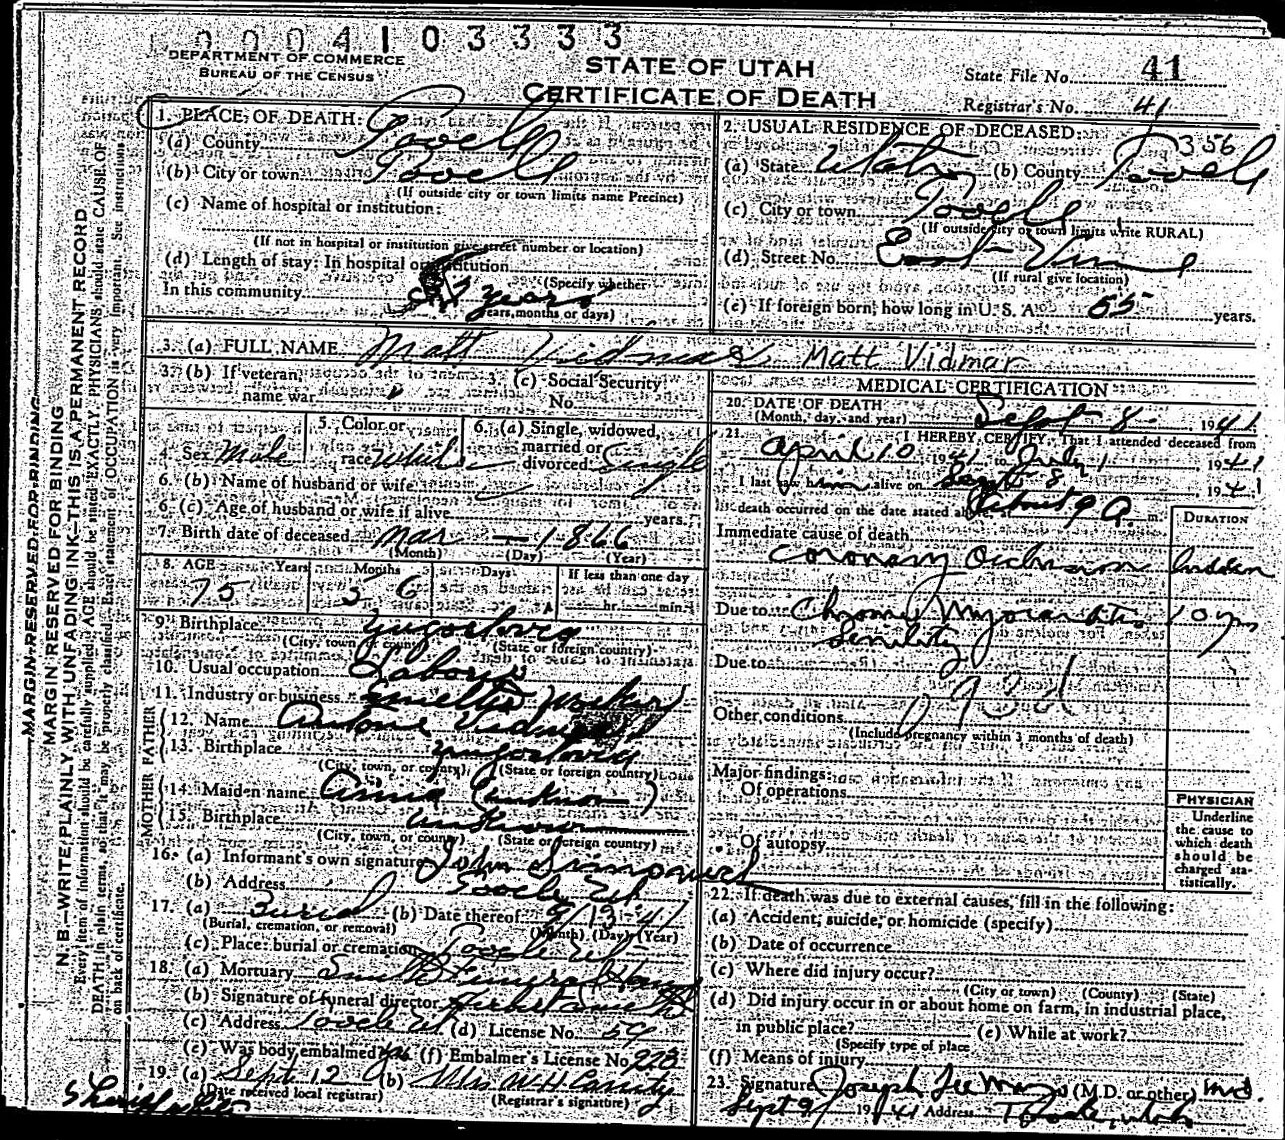 0 0 0 4 1 0 3 3 3 3
DEPARTMENT OF COMMERCE
BUREAU OF THE CENSUS
STATE OF UTAH
CERTIFICATE OF DEATH
State File No. 41
Registrar's No. 41
MARGIN RESERVED FOR BINDING
MARGIN RESERVED FOR BINDING
N. B.—WRITE PLAINLY WITH UNFADING INK—THIS IS A PERMANENT RECORD
Every item of information should be carefully supplied. AGE should be stated EXACTLY. PHYSICIANS should state CAUSE OF
DEATH in plain terms, so that it may be properly classified. Exact statement of OCCUPATION is very important. See instructions
on back of certificate.
1. PLACE OF DEATH:
(a) County Tooele
(b) City or town Tooele
(If outside city or town limits name Precinct)
(c) Name of hospital or institution:
(If not in hospital or institution give street number or location)
(d) Length of stay: In hospital or institution
(Specify whether
In this community years
years, months or days)
2. USUAL RESIDENCE OF DECEASED:
356
(a) State Utah (b) County Tooele
(c) City or town Tooele
(If outside city or town limits write RURAL)
(d) Street No. East Vine
(If rural give location)
(e) If foreign born, how long in U. S. A. 55 years.
3. (a) FULL NAME Matt Vidmar Matt Vidmar
3. (b) If veteran,
name war
3. (c) Social Security
No.
4. Sex Male
5. Color or
race White
6. (a) Single, widowed,
married or
divorced Single
6. (b) Name of husband or wife
6. (c) Age of husband or wife if alive years.
7. Birth date of deceased Mar — 1866
(Month) (Day) (Year)
8. AGE Years Months Days If less than one day
75 5 6 hr. min.
9. Birthplace Yugoslovia
(City, town, or county) (State or foreign country)
10. Usual occupation Laborer
11. Industry or business Smelter worker
FATHER
12. Name Antone Vidmar
13. Birthplace Yugoslovia
(City, town, or county) (State or foreign country)
MOTHER
14. Maiden name Anna (unknown)
15. Birthplace unknown
(City, town, or county) (State or foreign country)
16. (a) Informant's own signature John
(b) Address Tooele Ut
17. (a) Burial (b) Date thereof 9/13-41
(Burial, cremation, or removal) (Month) (Day) (Year)
(c) Place: burial or cremation Tooele Ut
18. (a) Mortuary Smith Funeral Home
(b) Signature of funeral director Herbert Smith
(c) Address Tooele Ut. (d) License No. 59
(e) Was body embalmed yes (f) Embalmer's License No. 223
19. (a) Sept 12 (b) Mrs W.H. Cassity
(Date received local registrar) (Registrar's signature)
MEDICAL CERTIFICATION
20. DATE OF DEATH
(Month, day, and year) Sept 8- 1941.
21. I HEREBY CERTIFY, That I attended deceased from
April 10 1941 to July 1, 1941
I last saw him alive on Sept 8, 1941
death occurred on the date stated above about 9 A. m.
DURATION
Immediate cause of death
Coronary Occlusion Sudden
Due to Chronic Myocarditis 10 yrs
Senility
Due to
93d
Other conditions
(Include pregnancy within 3 months of death)
Major findings:
Of operations
Of autopsy
PHYSICIAN
Underline
the cause to
which death
should be
charged sta-
tistically.
22. If death was due to external causes, fill in the following:
(a) Accident, suicide, or homicide (specify)
(b) Date of occurrence
(c) Where did injury occur?
(City or town) (County) (State)
(d) Did injury occur in or about home on farm, in industrial place,
in public place? (e) While at work?
(Specify type of place
(f) Means of injury
23. Signature Joseph (M.D. or other) M.D.
Sept 9 1941 Address Tooele, Utah